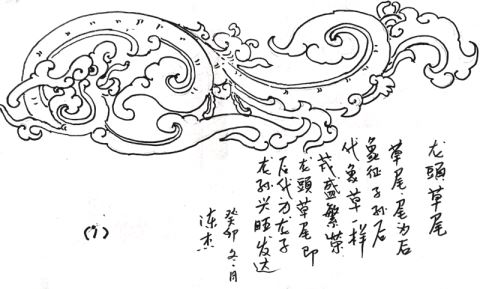 龙頭草尾
草尾:尾为后
象征子孙后
代象草一样
茂盛繁荣
龙頭草尾即
后代为龙子
龙孙兴旺发达
癸卯冬月
杰